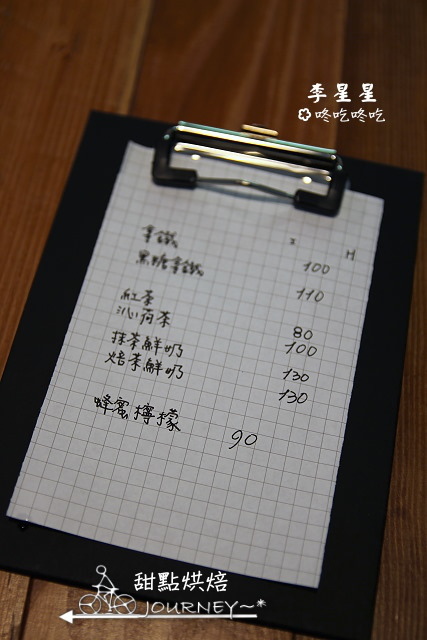 李星星
咚吃咚吃
I H
拿鐵 100
黑糖拿鐵 110
紅茶 80
沁荷茶 100
抹茶鮮奶 130
焙茶鮮奶 130
蜂蜜檸檬 90
甜點烘焙
JOURNEY~*